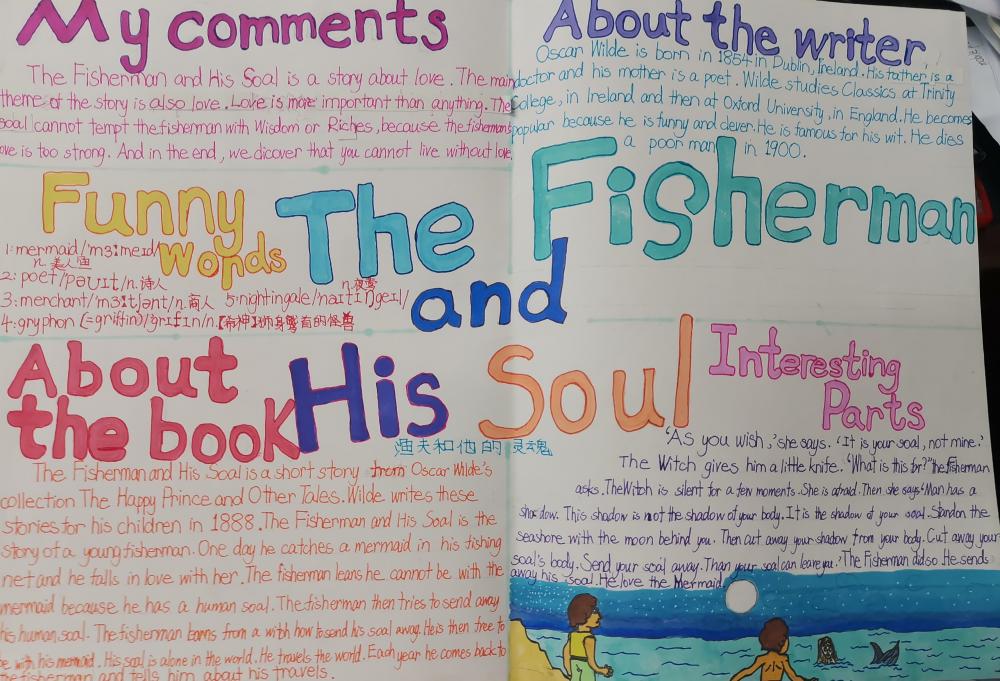 My comments
The Fisherman and His Soal is a story about love. The main
theme of the story is also love. Love is more important than anything. The
soal cannot tempt the fisherman with Wisdom or Riches, because the fishermans
love is too strong. And in the end, we dicover that you cannot live without love
About the writer
Oscar Wilde is born in 1854 in Dublin, Ireland. His father is a
doctor and his mother is a poet. Wilde studies Classics at Trinity
College, in Ireland and then at Oxford University, in England. He becomes
popular because he is funny and clever. He is famous for his wit. He dies
a poor man in 1900.
Funny
Words
1: mermaid/'mɜːmeɪd/
n. 美人鱼
2: poet/pəʊɪt/n.诗人
3: merchant/'mɜːtʃənt/n.商人 5:nightingale/naɪtɪŋgeɪl/
n.夜莺
4: gryphon (=griffin)/'grɪfɪn/n.【希神】狮身鹫首的怪兽
The Fisherman
and
His Soul
渔夫和他的灵魂
About
the book
The Fisherman and His Soal is a short story from Oscar Wilde's
collection The Happy Prince and Other Tales. Wilde writes these
stories for his children in 1888. The Fisherman and His Soal is the
story of a young fisherman. One day he catches a mermaid in his fishing
net and he falls in love with her. The fisherman leans he cannot be with the
mermaid because he has a human soal. The fisherman then tries to send away
his human soal. The fisherman learns from a witch how to send his soal away. He is then free to
be with his mermaid. His soal is alone in the world. He travels the world. Each year he comes back to
the fisherman and tells him about his travels.
Interesting
Parts
'As you wish,' she says. 'It is your soal, not mine.'
The Witch gives him a little knife. 'What is this for?' the fisherman
asks. The Witch is silent for a few moments. She is afraid. Then she says 'Man has a
shadow. This shadow is not the shadow of your body. It is the shadow of your soal. Standon the
seashore with the moon behind you. Then cut away your shadow from your body. Cut away your
soal's body. Send your soal away. Than your soal can leave you.' The Fisherman did so. He sends
away his soal. He love the Mermaid.